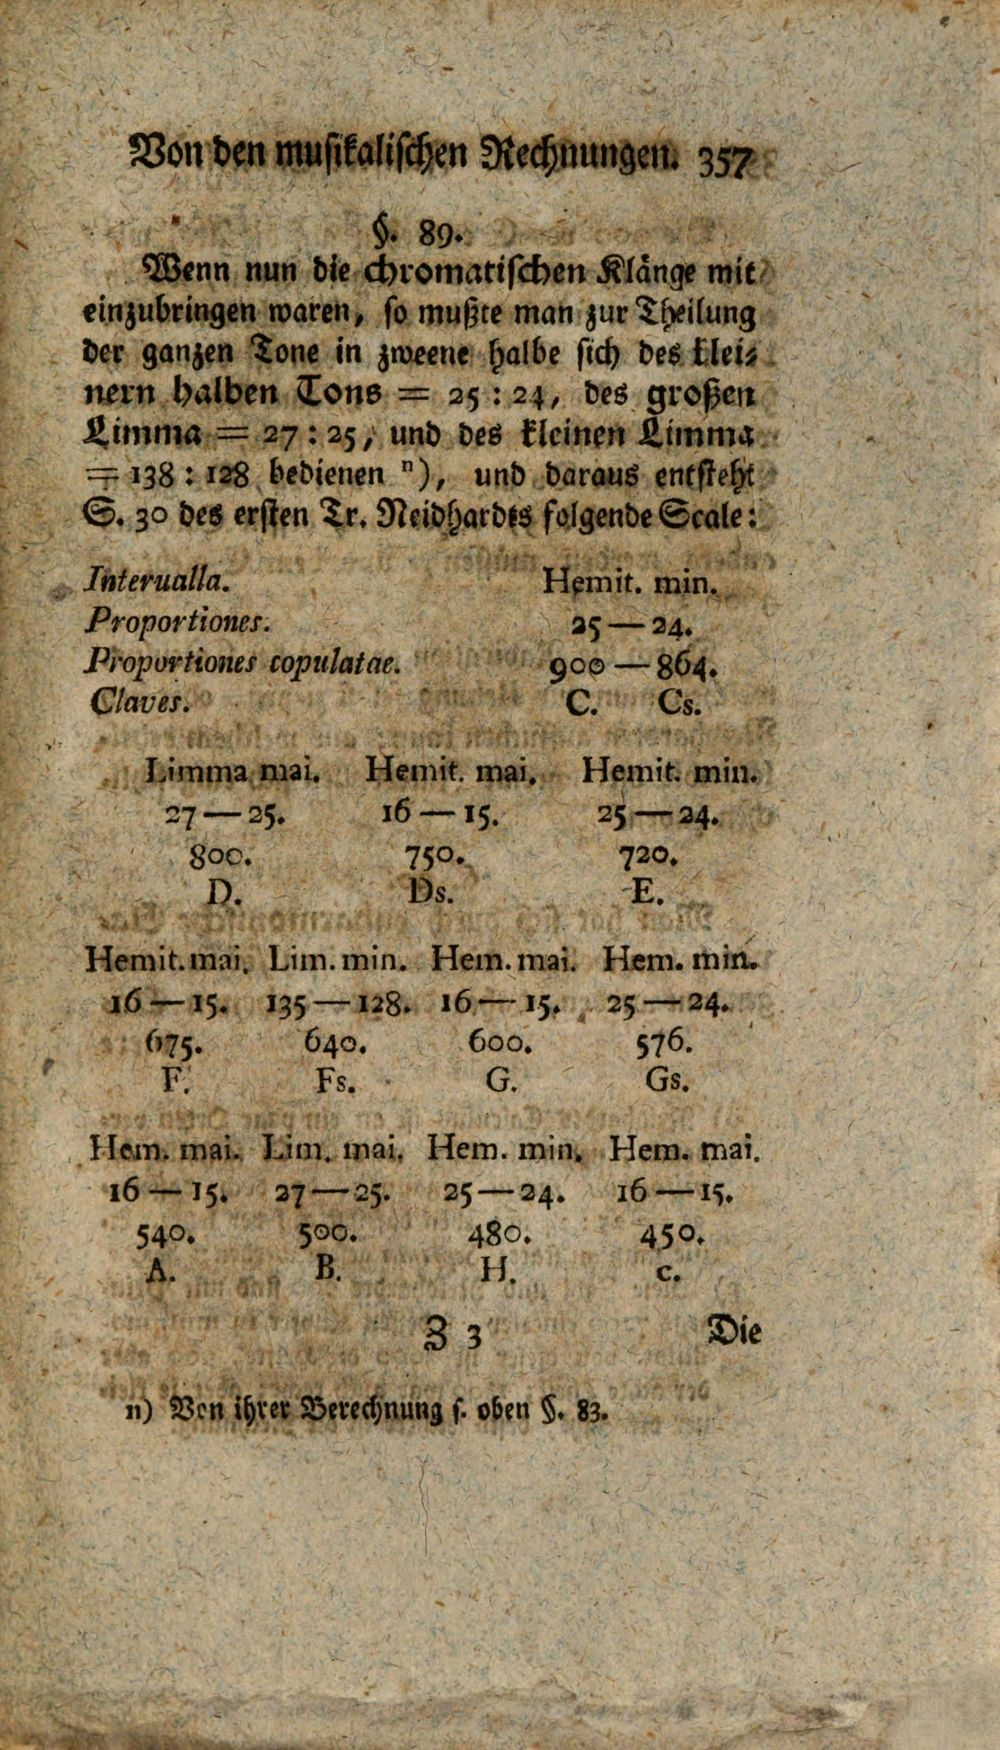 Von den musikalischen Rechnungen. 357
§. 89.
Wenn nun die chromatischen Klänge mit
einzubringen waren, so mußte man zur Theilung
der ganzen Tone in zweene halbe sich des klei⸗
nern halben Tons = 25 : 24, des großen
Limma = 27 : 25, und des kleinen Limma
= 138 : 128 bedienen ⁿ), und daraus entsteht
S. 30 des ersten Tr. Neidhardts folgende Scale:
Interualla. Hemit. min.
Proportiones. 25 — 24.
Proportiones copulatae. 900 — 864.
Claves. C. Cs.
Limma mai. Hemit. mai. Hemit. min.
27 — 25. 16 — 15. 25 — 24.
800. 750. 720.
D. Ds. E.
Hemit. mai. Lim. min. Hem. mai. Hem. min.
16 — 15. 135 — 128. 16 — 15. 25 — 24.
675. 640. 600. 576.
F. Fs. G. Gs.
Hem. mai. Lim. mai. Hem. min. Hem. mai.
16 — 15. 27 — 25. 25 — 24. 16 — 15.
540. 500. 480. 450.
A. B. H. c.
Z 3 Die
n) Von ihrer Berechnung s. oben §. 83.